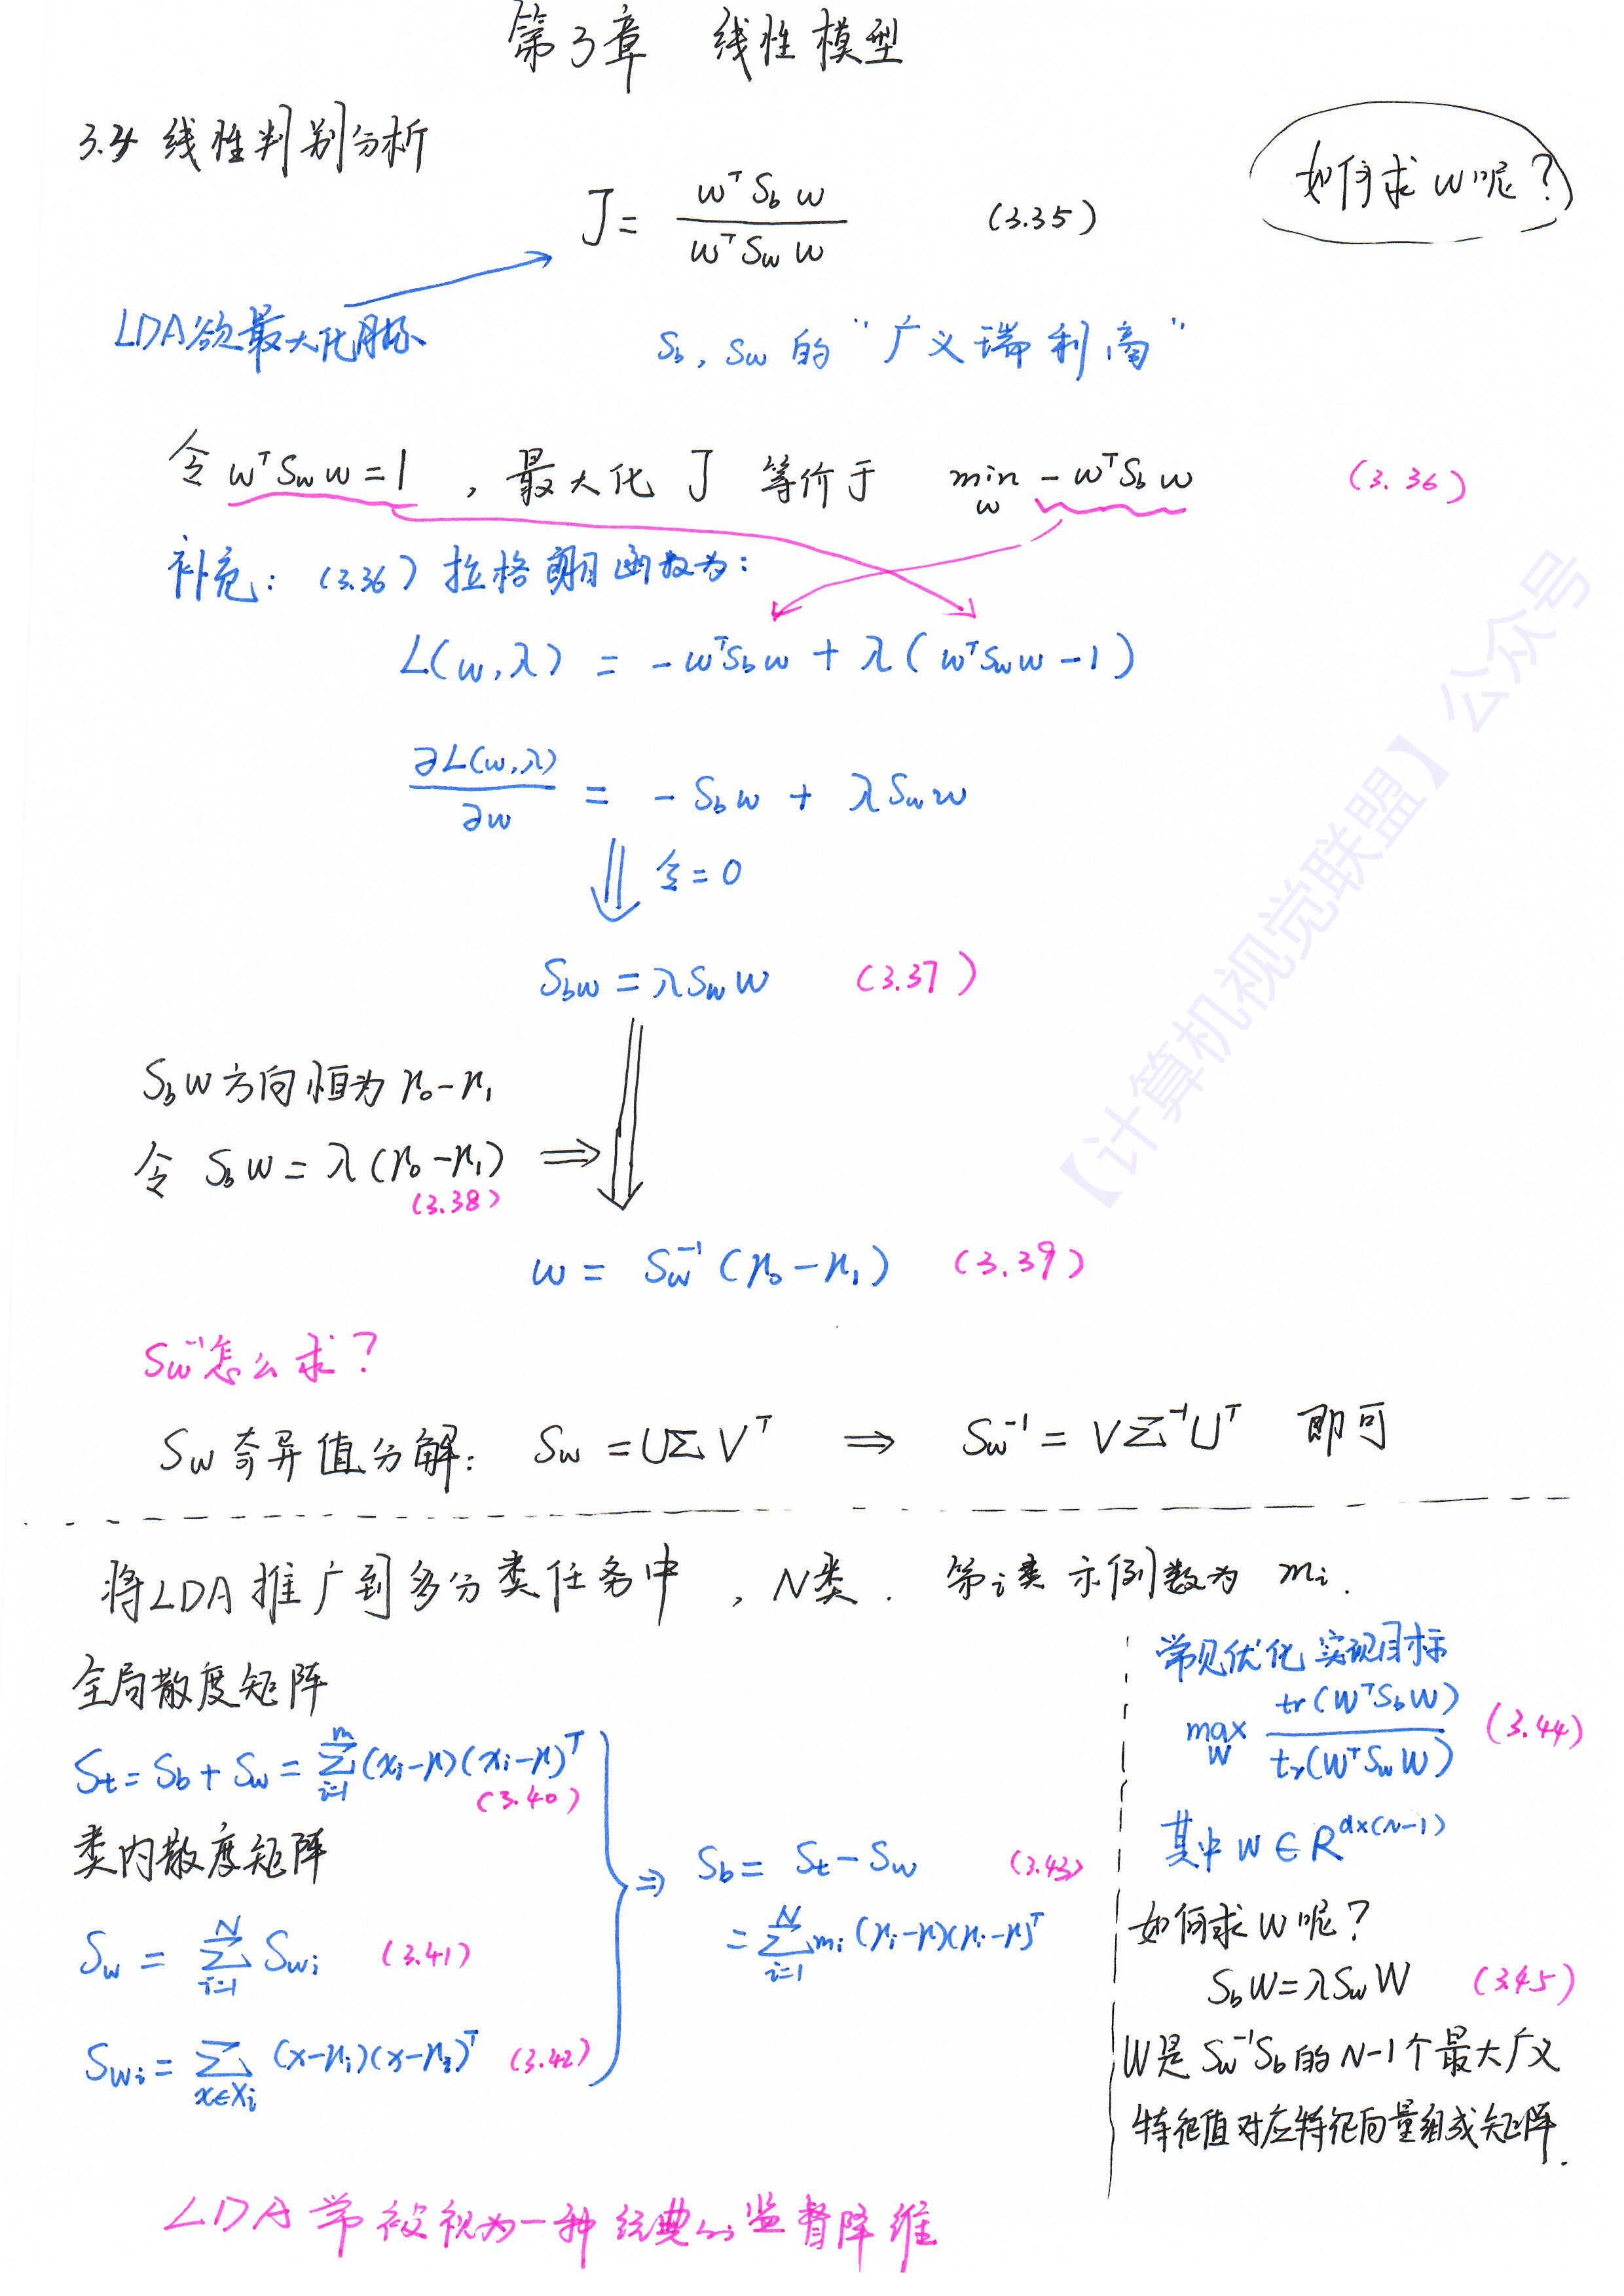 第3章 线性模型
3.4 线性判别分析
如何求 w 呢?
J = wᵀS_b w / wᵀS_w w (3.35)
LDA欲最大化目标
S_b, S_w 的 "广义瑞利商"
令 wᵀS_w w = 1 , 最大化 J 等价于 min_w − wᵀS_b w (3.36)
补充: (3.36) 拉格朗日函数为:
L(w,λ) = −wᵀS_b w + λ(wᵀS_w w − 1)
∂L(w,λ)/∂w = − S_b w + λS_w w
⇓ 令 = 0
S_b w = λS_w w (3.37)
S_b w 方向恒为 μ₀−μ₁
令 S_b w = λ(μ₀−μ₁) ⇒
(3.38)
w = S_w⁻¹(μ₀−μ₁) (3.39)
S_w⁻¹怎么求?
S_w 奇异值分解: S_w = UΣVᵀ ⇒ S_w⁻¹ = VΣ⁻¹Uᵀ 即可
将LDA推广到多分类任务中 , N类. 第i类示例数为 mᵢ.
全局散度矩阵
S_t = S_b + S_w = Σ_{i=1}^{m} (xᵢ−μ)(xᵢ−μ)ᵀ
(3.40)
类内散度矩阵
S_w = Σ_{i=1}^{N} S_{wᵢ} (3.41)
S_{wᵢ} = Σ_{x∈Xᵢ} (x−μᵢ)(x−μᵢ)ᵀ (3.42)
⇒ S_b = S_t − S_w (3.43)
= Σ_{i=1}^{N} mᵢ(μᵢ−μ)(μᵢ−μ)ᵀ
常见优化实现目标
max_W tr(WᵀS_b W) / tr(WᵀS_w W) (3.44)
其中 W ∈ R^{d×(N−1)}
如何求 W 呢?
S_b W = λS_w W (3.45)
W是 S_w⁻¹S_b 的 N−1个最大广义
特征值对应特征向量组成矩阵.
LDA常被视为一种经典的监督降维
【计算机视觉联盟】公众号